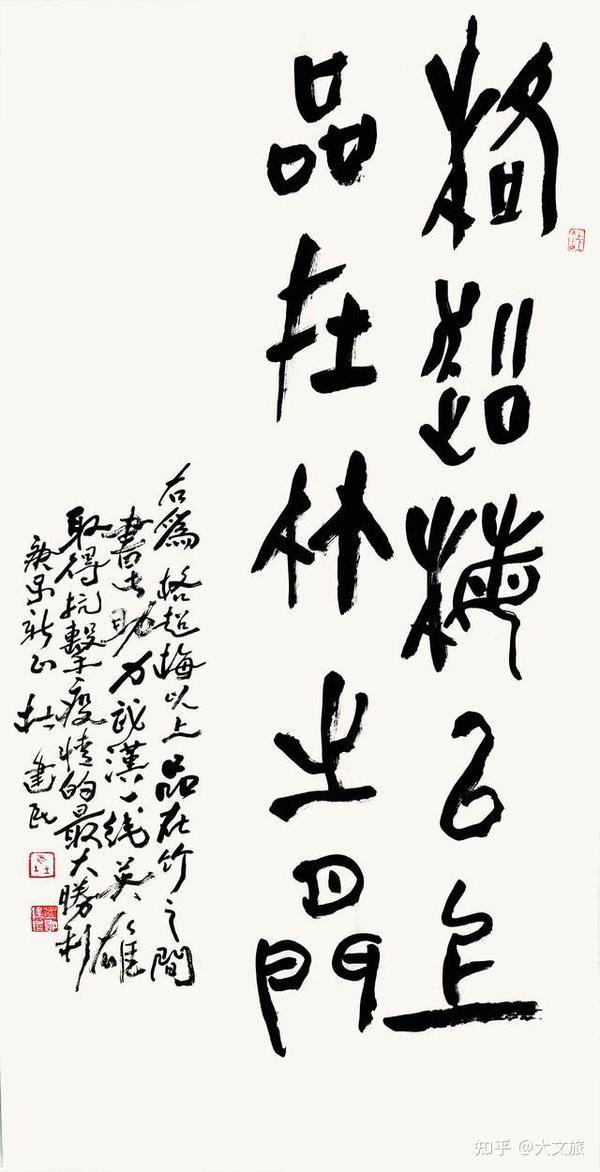 格超梅以上
品在竹之間
右爲格超梅以上品在竹之間
書助力武漢一线英雄
取得抗擊疫情的最大勝利
庚子新正 杜建民
知乎 @大文旅